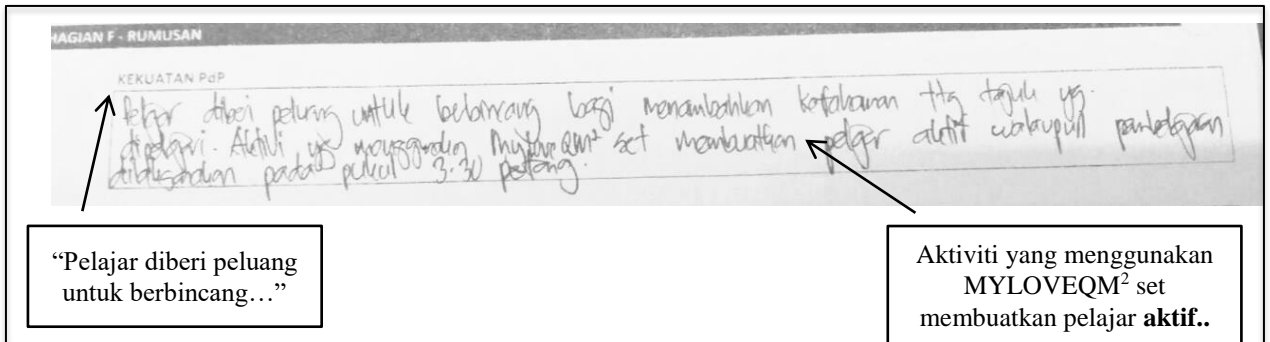 HAGIAN F - RUMUSAN
KEKUATAN PdP
Pelajar diberi peluang untuk berbincang bagi menambahkan kefahaman ttg tajuk yg.
dipelajari. Aktiviti yg menggunakan MyLoveQM² set membuatkan pelajar aktif walaupun pembelajaran
dilaksanakan pada pukul 3.30 petang.
“Pelajar diberi peluang
untuk berbincang…”
Aktiviti yang menggunakan
MYLOVEQM² set
membuatkan pelajar aktif..